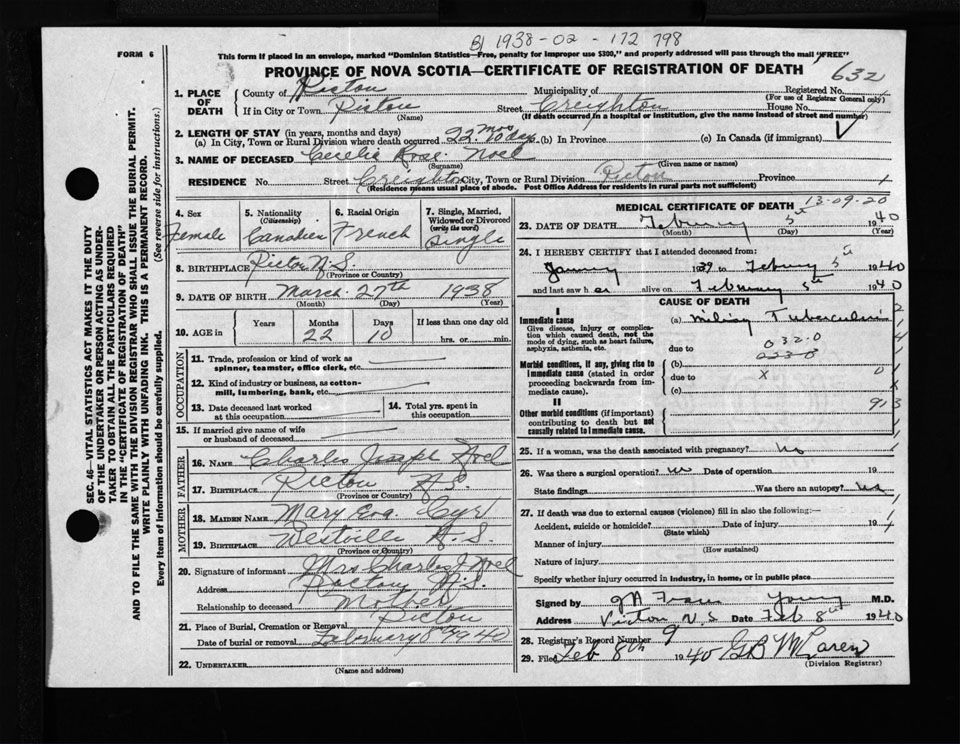 B) 1938-02-172798
FORM 6
This form if placed in an envelope, marked "Dominion Statistics—Free, penalty for improper use $300," and properly addressed will pass through the mail "FREE"
PROVINCE OF NOVA SCOTIA—CERTIFICATE OF REGISTRATION OF DEATH
632
1. PLACE OF DEATH
County of Pictou Municipality of Registered No.
(For use of Registrar General only)
If in City or Town Pictou Street Creighton House No.
(Name) (If death occurred in a hospital or institution, give the name instead of street and number)
2. LENGTH OF STAY (in years, months and days)
(a) In City, Town or Rural Division where death occurred 22 mos 10 days (b) In Province (c) In Canada (if immigrant)
3. NAME OF DECEASED Cecelia Rose Noel
(Surname) (Given name or names)
RESIDENCE No. Street Creighton City, Town or Rural Division Pictou Province
(Residence means usual place of abode. Post Office Address for residents in rural parts not sufficient)
4. Sex Female
5. Nationality (Citizenship) Canadian
6. Racial Origin French
7. Single, Married, Widowed or Divorced (write the word) Single
8. BIRTHPLACE Pictou N.S.
(Province or Country)
9. DATE OF BIRTH March 27th 1938
(Month) (Day) (Year)
10. AGE in Years Months 22 Days 10 If less than one day old hrs. or min.
OCCUPATION
11. Trade, profession or kind of work as spinner, teamster, office clerk, etc.
12. Kind of industry or business, as cotton-mill, lumbering, bank, etc.
13. Date deceased last worked at this occupation
14. Total yrs. spent in this occupation
15. If married give name of wife or husband of deceased
FATHER
16. NAME Charles Joseph Noel
17. BIRTHPLACE Pictou N.S.
(Province or Country)
MOTHER
18. MAIDEN NAME Mary Eva Cyr
19. BIRTHPLACE Westville N.S.
(Province or Country)
20. Signature of informant Mrs Charles J Noel
Address Pictou N.S.
Relationship to deceased Mother
21. Place of Burial, Cremation or Removal Pictou
Date of burial or removal February 8 1940
22. UNDERTAKER
(Name and address)
MEDICAL CERTIFICATE OF DEATH 13-09-20
23. DATE OF DEATH February 5th 1940
(Month) (Day) (Year)
24. I HEREBY CERTIFY that I attended deceased from:
1939 to February 5th 1940
and last saw her alive on February 5th 1940
CAUSE OF DEATH
I
Immediate cause
Give disease, injury or complication which caused death, not the mode of dying, such as heart failure, asphyxia, asthenia, etc.
(a) Miliary Tuberculosis
due to 032.0
Morbid conditions, if any, giving rise to immediate cause (stated in order proceeding backwards from immediate cause).
(b)
due to x
(c)
II
Other morbid conditions (if important) contributing to death but not causally related to immediate cause.
913
25. If a woman, was the death associated with pregnancy? No
26. Was there a surgical operation? no Date of operation 19
State findings Was there an autopsy? no
27. If death was due to external causes (violence) fill in also the following:—
Accident, suicide or homicide? Date of injury 19
(State which)
Manner of injury
(How sustained)
Nature of injury
Specify whether injury occurred in industry, in home, or in public place
Signed by Young M.D.
Address Pictou N.S. Date Feb 8th 1940
28. Registrar's Record Number 9
29. Filed Feb 8th 1940 G B McLaren
(Division Registrar)
SEC. 46—VITAL STATISTICS ACT MAKES IT THE DUTY
OF THE UNDERTAKER OR PERSON ACTING AS UNDERTAKER
TO OBTAIN ALL THE PARTICULARS REQUIRED
IN THE "CERTIFICATE OF REGISTRATION OF DEATH"
AND TO FILE THE SAME WITH THE DIVISION REGISTRAR WHO SHALL ISSUE THE BURIAL PERMIT.
WRITE PLAINLY WITH UNFADING INK. THIS IS A PERMANENT RECORD.
Every item of information should be carefully supplied. (See reverse side for instructions.)